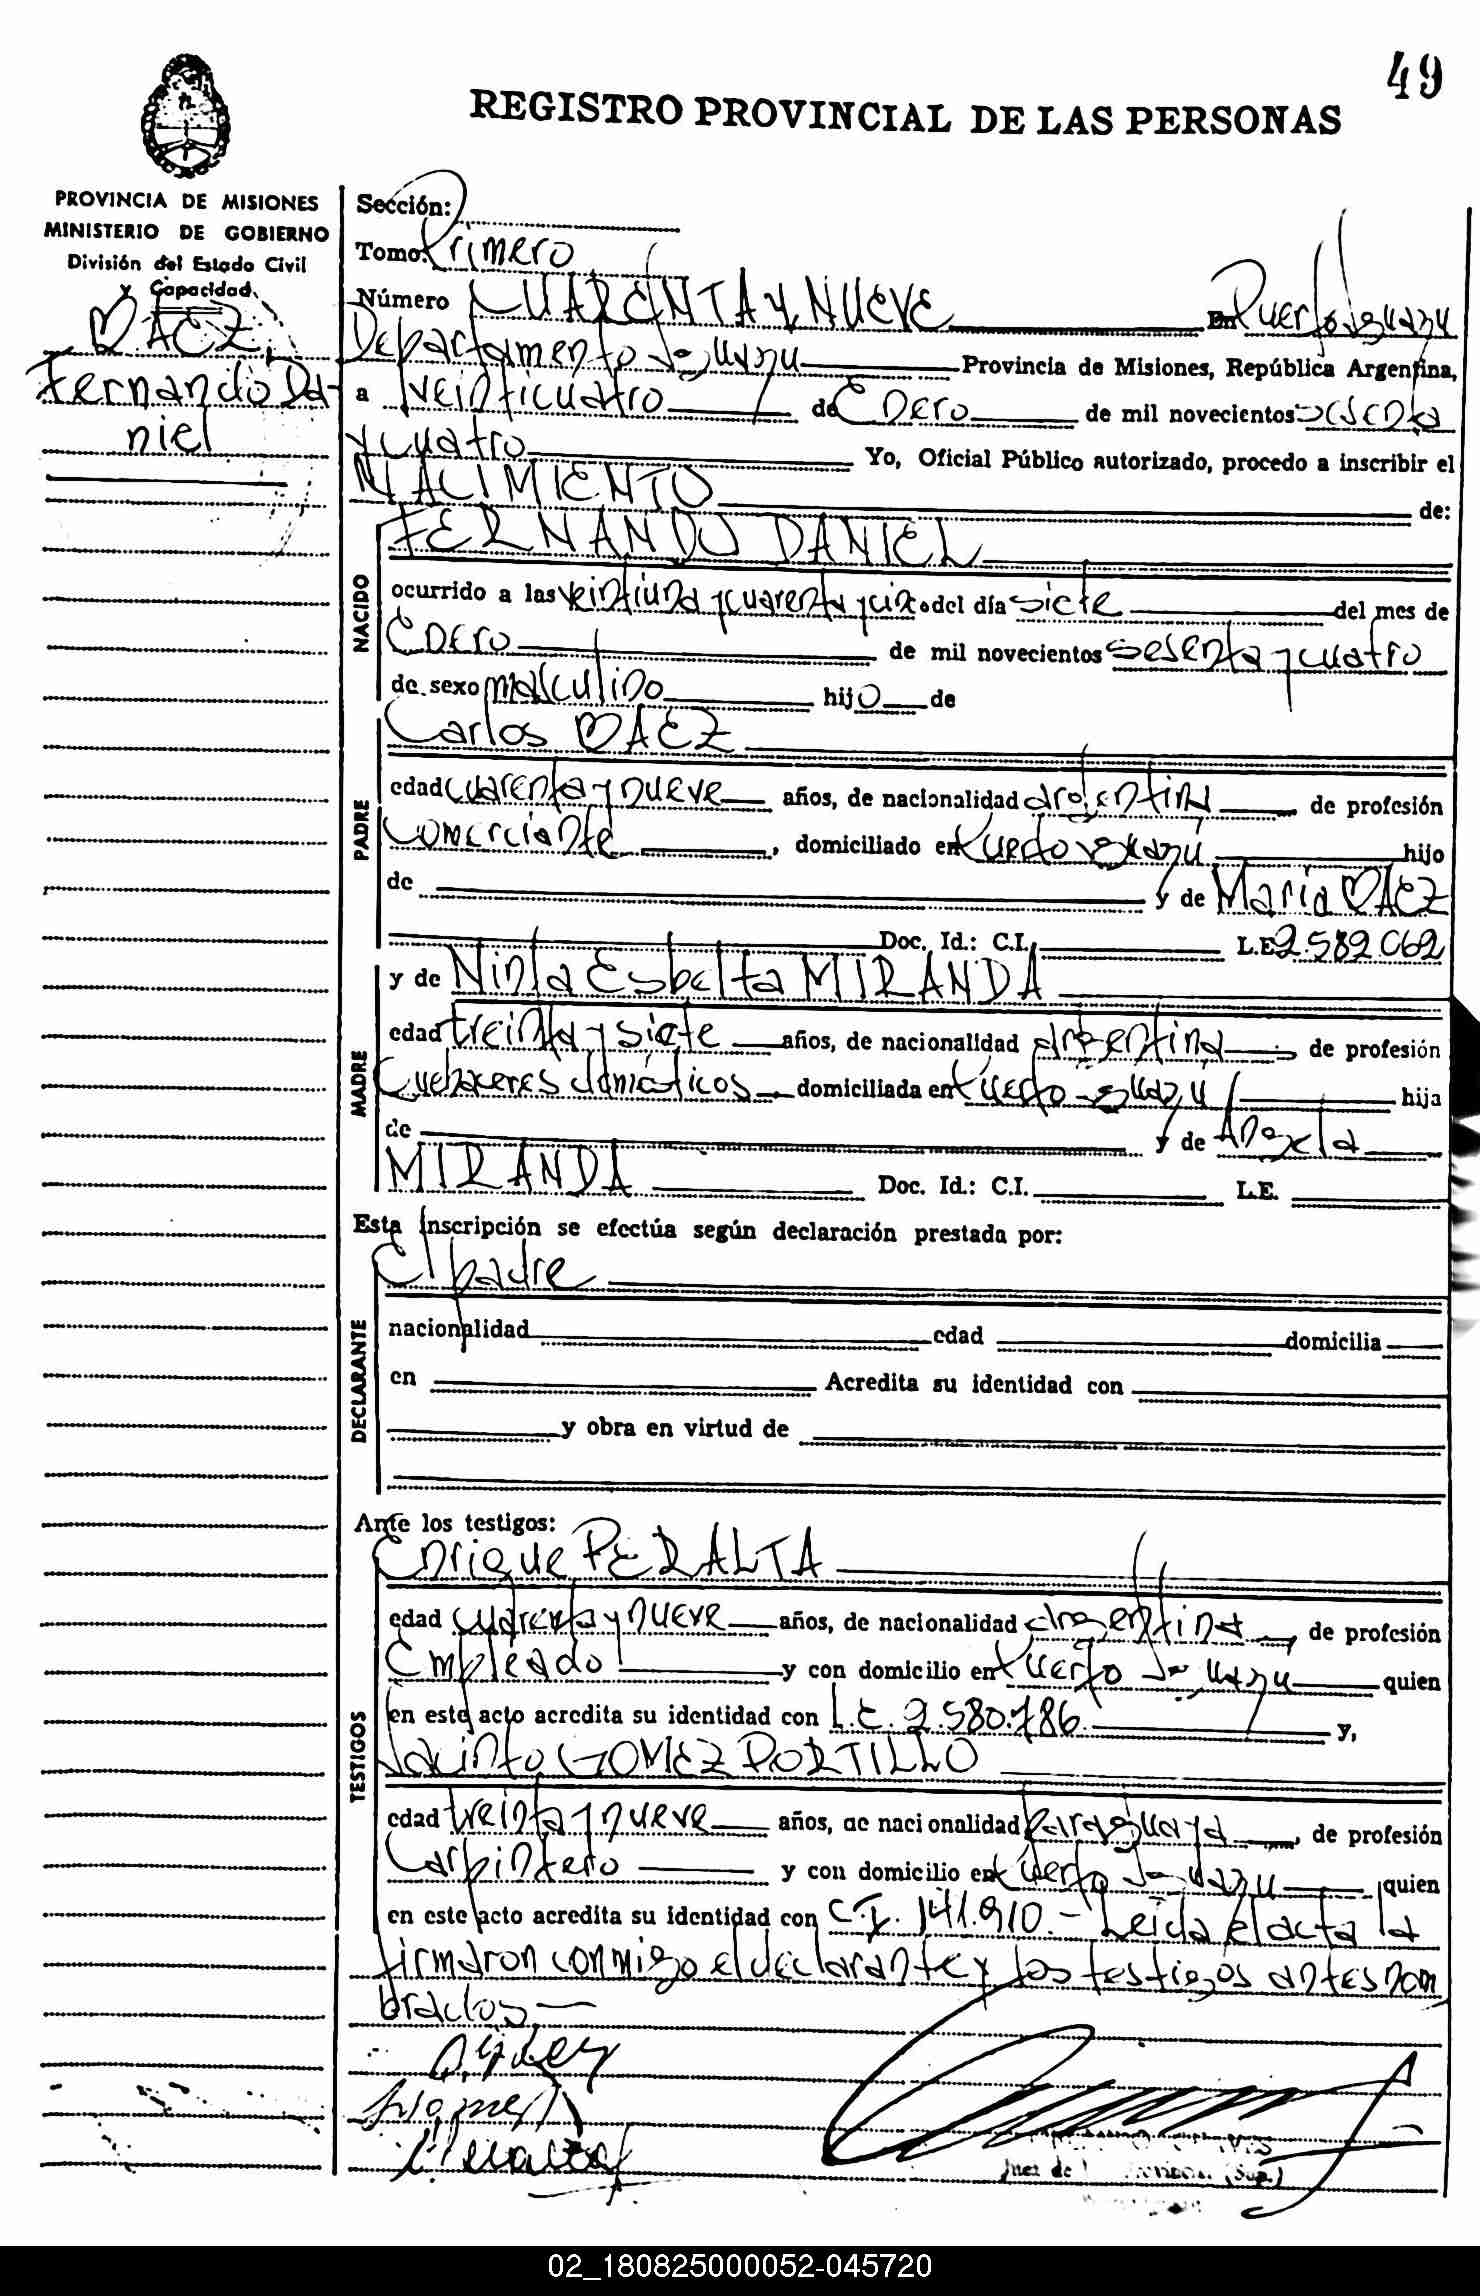 49
REGISTRO PROVINCIAL DE LAS PERSONAS
PROVINCIA DE MISIONES
MINISTERIO DE GOBIERNO
División del Estado Civil
y Capacidad
BAEZ
Fernando Da-
niel
Sección:
Tomo: Primero
Número CUARENTA Y NUEVE En Puerto Iguazú
Departamento Iguazú Provincia de Misiones, República Argentina,
a veinticuatro de Enero de mil novecientos sesenta
y cuatro Yo, Oficial Público autorizado, procedo a inscribir el
NACIMIENTO de:
NACIDO
FERNANDO DANIEL
ocurrido a las veintiuna y cuarenta y cinco del día siete del mes de
Enero de mil novecientos sesenta y cuatro
de sexo masculino hijo de
PADRE
Carlos BAEZ
edad cuarenta y nueve años, de nacionalidad argentina de profesión
Comerciante, domiciliado en Puerto Iguazú hijo
de y de María BAEZ
Doc. Id.: C.I. L.E. 2.582.062
MADRE
y de Ninfa Esbelta MIRANDA
edad treinta y siete años, de nacionalidad argentina de profesión
Quehaceres domésticos domiciliada en Puerto Iguazú hija
de y de Angela
MIRANDA Doc. Id.: C.I. L.E.
Esta inscripción se efectúa según declaración prestada por:
DECLARANTE
El padre
nacionalidad edad domicilia
en Acredita su identidad con
y obra en virtud de
Ante los testigos:
TESTIGOS
Enrique PERALTA
edad cuarenta y nueve años, de nacionalidad argentina, de profesión
Empleado y con domicilio en Puerto Iguazú quien
en este acto acredita su identidad con L.E. 2.580.786 y,
Jacinto GOMEZ PORTILLO
edad treinta y nueve años, de nacionalidad paraguaya, de profesión
Carpintero y con domicilio en Puerto Iguazú quien
en este acto acredita su identidad con C.I. 141.910.- Leída el acta la
firmaron conmigo el declarante y los testigos antes nom
brados
Juez de (Sup.)
02_180825000052-045720